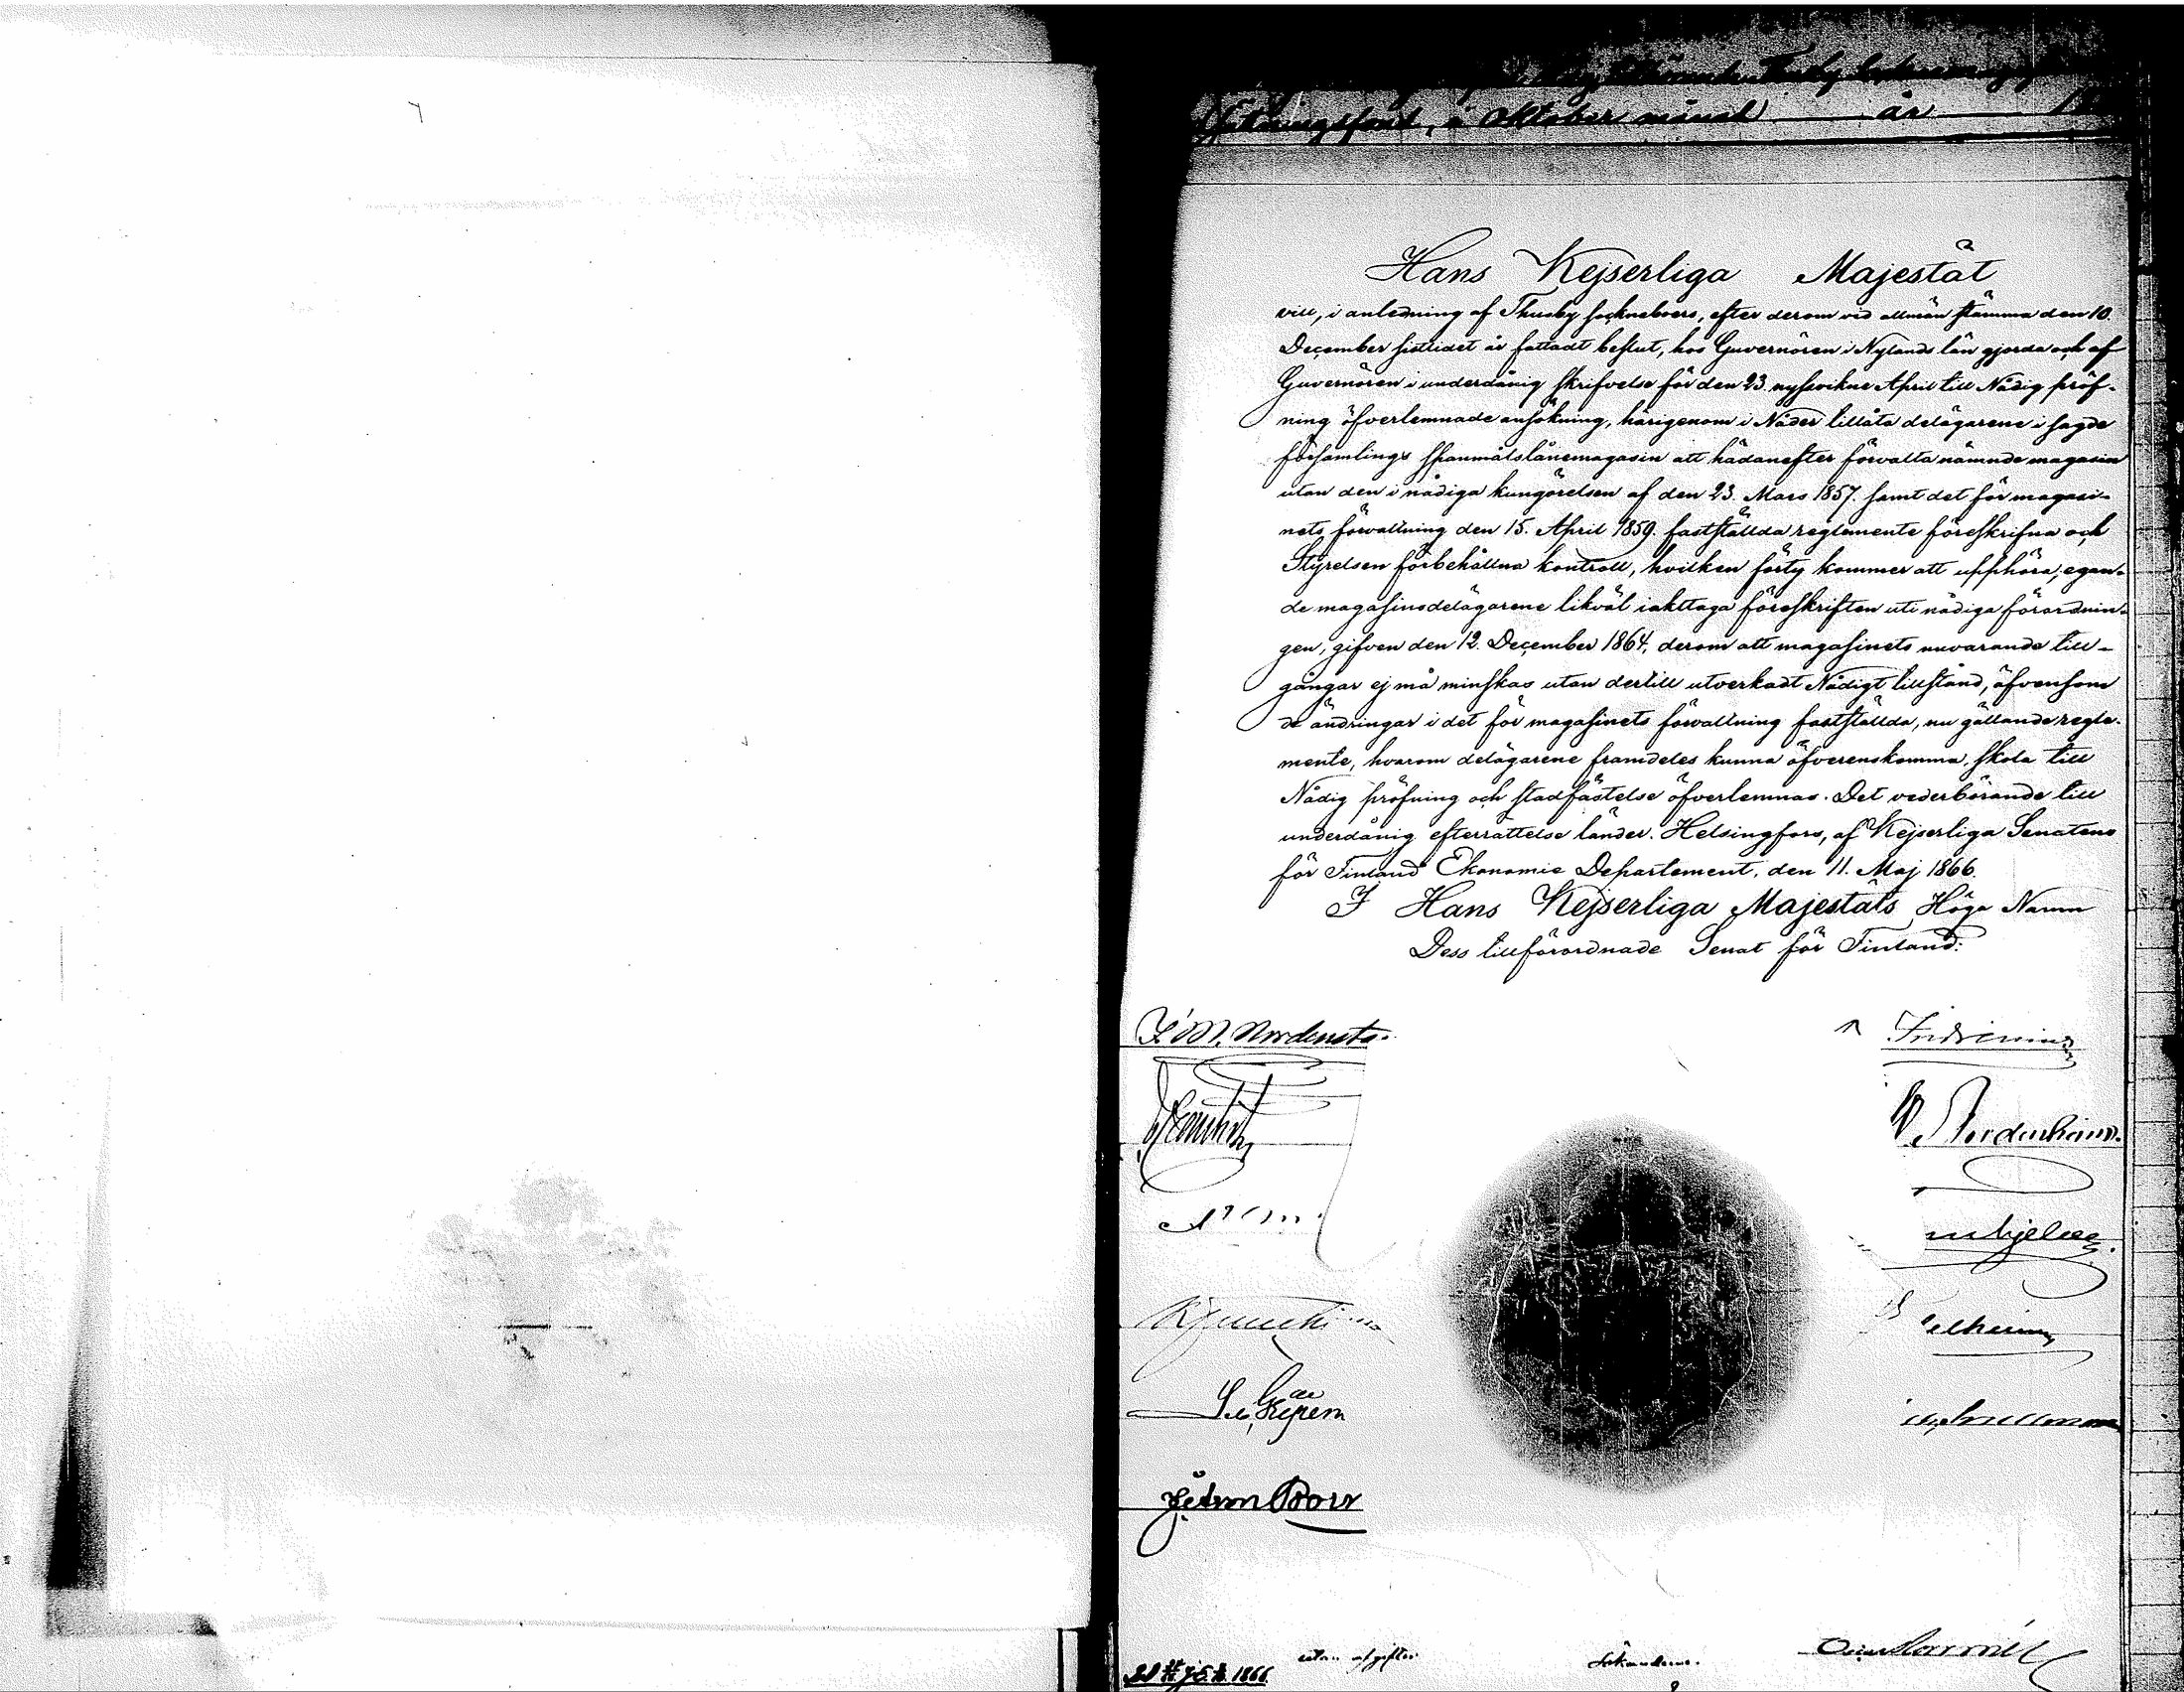 år
Oktober månad
Hans Kejserliga Majestät
vill, i anledning af Thusby sockneboers, efter derom vid allmän stämma den 10.
December sistlidet år fattadt beslut, hos Guvernören i Nylands län gjorda och af
Guvernören i underdånig skrifvelse för den 23. nyssvikne April till Nådig pröf-
ning öfverlemnade ansökning, härigenom i Nåder tillåta delägarene i sagde
församlings spanmålslånemagasin att hädanefter förvalta nämnde magasin
utan den i nådiga kungörelsen af den 23. Mars 1857. samt det för magasi-
nets förvaltning den 15. April 1859. fastställda reglemente föreskrifna och
Styrelsen förbehållna kontroll, hvilken förty kommer att upphöra; egan-
de magasinsdelägarene likväl iakttaga föreskriften uti nådiga förordnin-
gen, gifven den 12. December 1864, derom att magasinets nuvarande till-
gångar ej må minskas utan dertill utverkadt Nådigt tillstånd, äfvensom
de ändringar i det för magasinets förvaltning fastställda, nu gällande regle-
mente, hvarom delägarene framdeles kunna öfverenskomma, skola till
Nådig pröfning och stadfästelse öfverlemnas. Det vederbörande till
underdånig efterrättelse länder. Helsingfors, af Kejserliga Senatens
för Finland Ekonomie Departement, den 11. Maj 1866.
I Hans Kejserliga Majestäts Höga Namn
Dess tillförordnade Senat för Finland:
J. M. Nordensta
utan afgifter
Sökandene.
1866